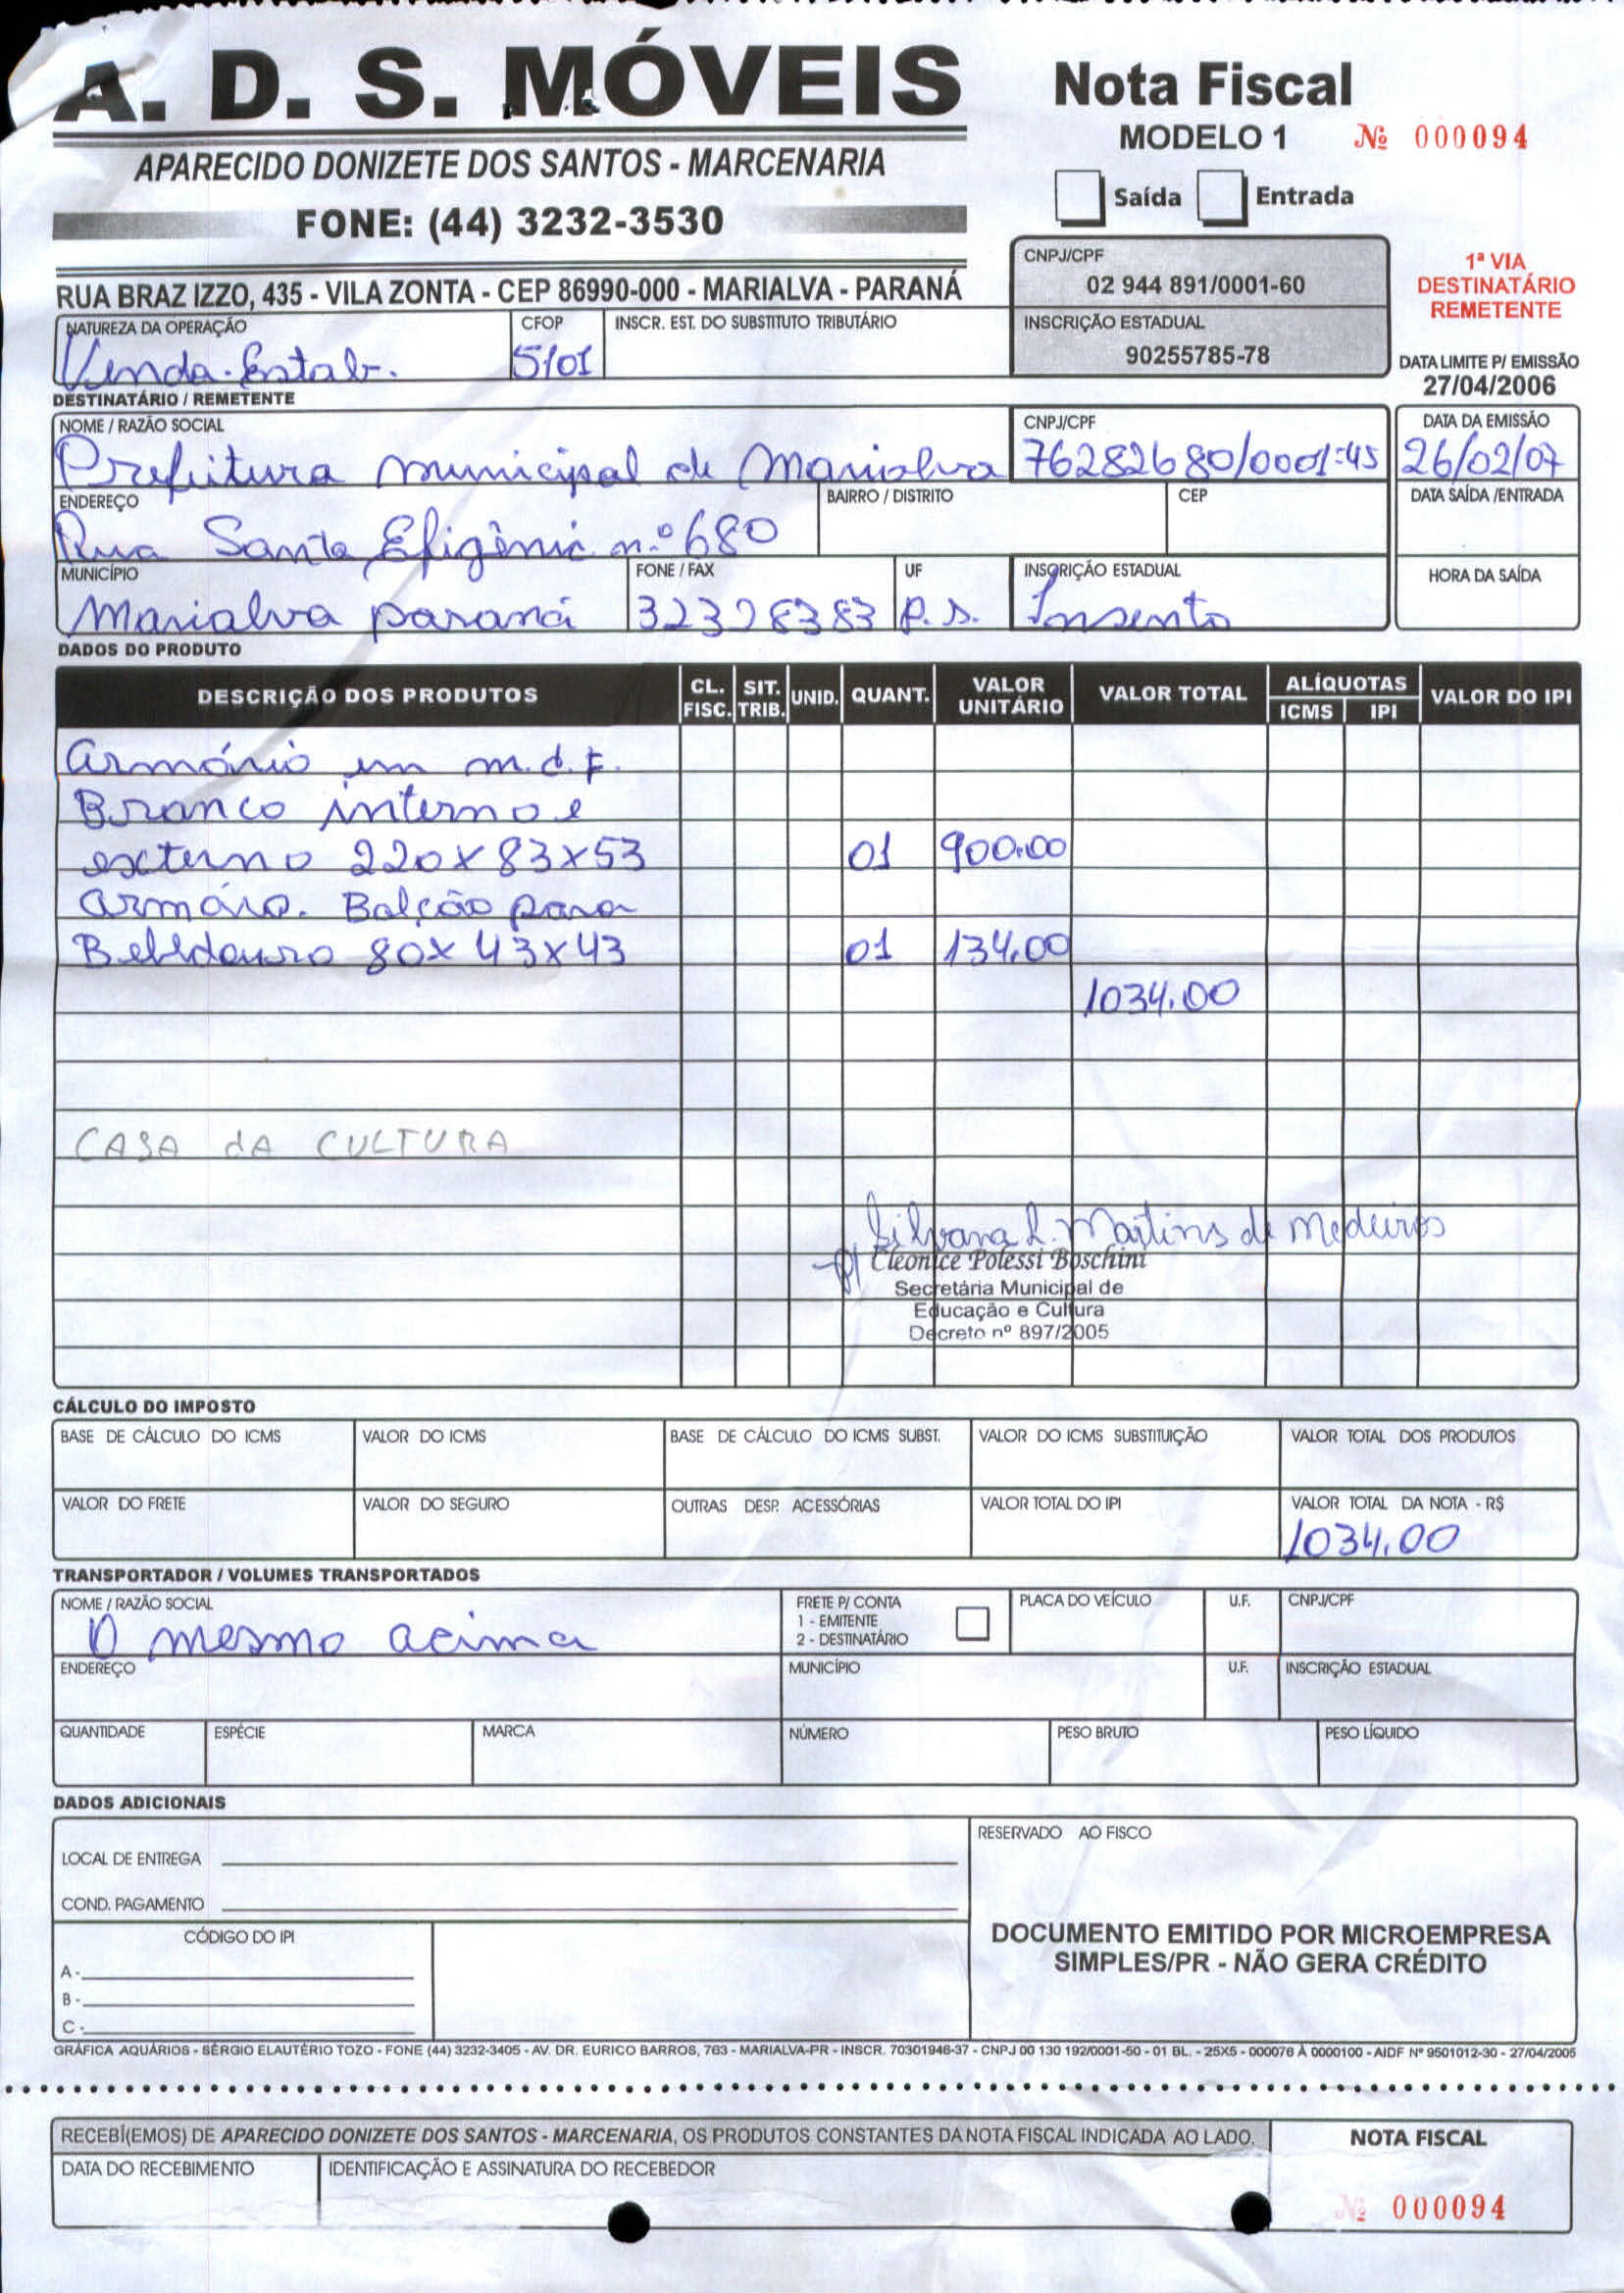 A. D. S. MÓVEIS
APARECIDO DONIZETE DOS SANTOS - MARCENARIA
FONE: (44) 3232-3530
RUA BRAZ IZZO, 435 - VILA ZONTA - CEP 86990-000 - MARIALVA - PARANÁ
Nota Fiscal
MODELO 1 Nº 000094
Saída Entrada
CNPJ/CPF
02 944 891/0001-60
INSCRIÇÃO ESTADUAL
90255785-78
1ª VIA
DESTINATÁRIO
REMETENTE
DATA LIMITE P/ EMISSÃO
27/04/2006
NATUREZA DA OPERAÇÃO CFOP INSCR. EST. DO SUBSTITUTO TRIBUTÁRIO
Venda. Estab. 5101
DESTINATÁRIO / REMETENTE
NOME / RAZÃO SOCIAL CNPJ/CPF DATA DA EMISSÃO
Prefeitura municipal de Marialva 76282680/0001-45 26/02/07
ENDEREÇO BAIRRO / DISTRITO CEP DATA SAÍDA /ENTRADA
Rua Santa Efigênia n.º 680
MUNICÍPIO FONE / FAX UF INSCRIÇÃO ESTADUAL HORA DA SAÍDA
Marialva paraná 32328383 Insento
DADOS DO PRODUTO
DESCRIÇÃO DOS PRODUTOS CL. FISC. SIT. TRIB. UNID. QUANT. VALOR UNITÁRIO VALOR TOTAL ALÍQUOTAS ICMS IPI VALOR DO IPI
armário em m.d.F.
Branco interno e
externo 220x83x53 01 900.00
armário. Balcão para
Bebedouro 80x43x43 01 134.00
1034.00
CASA dA CULTURA
Silvana L. Martins de Medeiros
p/ Cleonice Polessi Boschini
Secretária Municipal de
Educação e Cultura
Decreto nº 897/2005
CÁLCULO DO IMPOSTO
BASE DE CÁLCULO DO ICMS VALOR DO ICMS BASE DE CÁLCULO DO ICMS SUBST. VALOR DO ICMS SUBSTITUIÇÃO VALOR TOTAL DOS PRODUTOS
VALOR DO FRETE VALOR DO SEGURO OUTRAS DESP. ACESSÓRIAS VALOR TOTAL DO IPI VALOR TOTAL DA NOTA - R$
1034.00
TRANSPORTADOR / VOLUMES TRANSPORTADOS
NOME / RAZÃO SOCIAL FRETE P/ CONTA PLACA DO VEÍCULO U.F. CNPJ/CPF
1 - EMITENTE
2 - DESTINATÁRIO
O mesmo acima
ENDEREÇO MUNICÍPIO U.F. INSCRIÇÃO ESTADUAL
QUANTIDADE ESPÉCIE MARCA NÚMERO PESO BRUTO PESO LÍQUIDO
DADOS ADICIONAIS
LOCAL DE ENTREGA
COND. PAGAMENTO
CÓDIGO DO IPI
A -
B -
C -
RESERVADO AO FISCO
DOCUMENTO EMITIDO POR MICROEMPRESA
SIMPLES/PR - NÃO GERA CRÉDITO
GRÁFICA AQUÁRIOS - SÉRGIO ELAUTÉRIO TOZO - FONE (44) 3232-3405 - AV. DR. EURICO BARROS, 763 - MARIALVA-PR - INSCR. 70301946-37 - CNPJ 00 130 192/0001-50 - 01 BL. - 25X5 - 000076 À 0000100 - AIDF Nº 9501012-30 - 27/04/2005
RECEBÍ(EMOS) DE APARECIDO DONIZETE DOS SANTOS - MARCENARIA, OS PRODUTOS CONSTANTES DA NOTA FISCAL INDICADA AO LADO.
DATA DO RECEBIMENTO IDENTIFICAÇÃO E ASSINATURA DO RECEBEDOR
NOTA FISCAL
Nº 000094